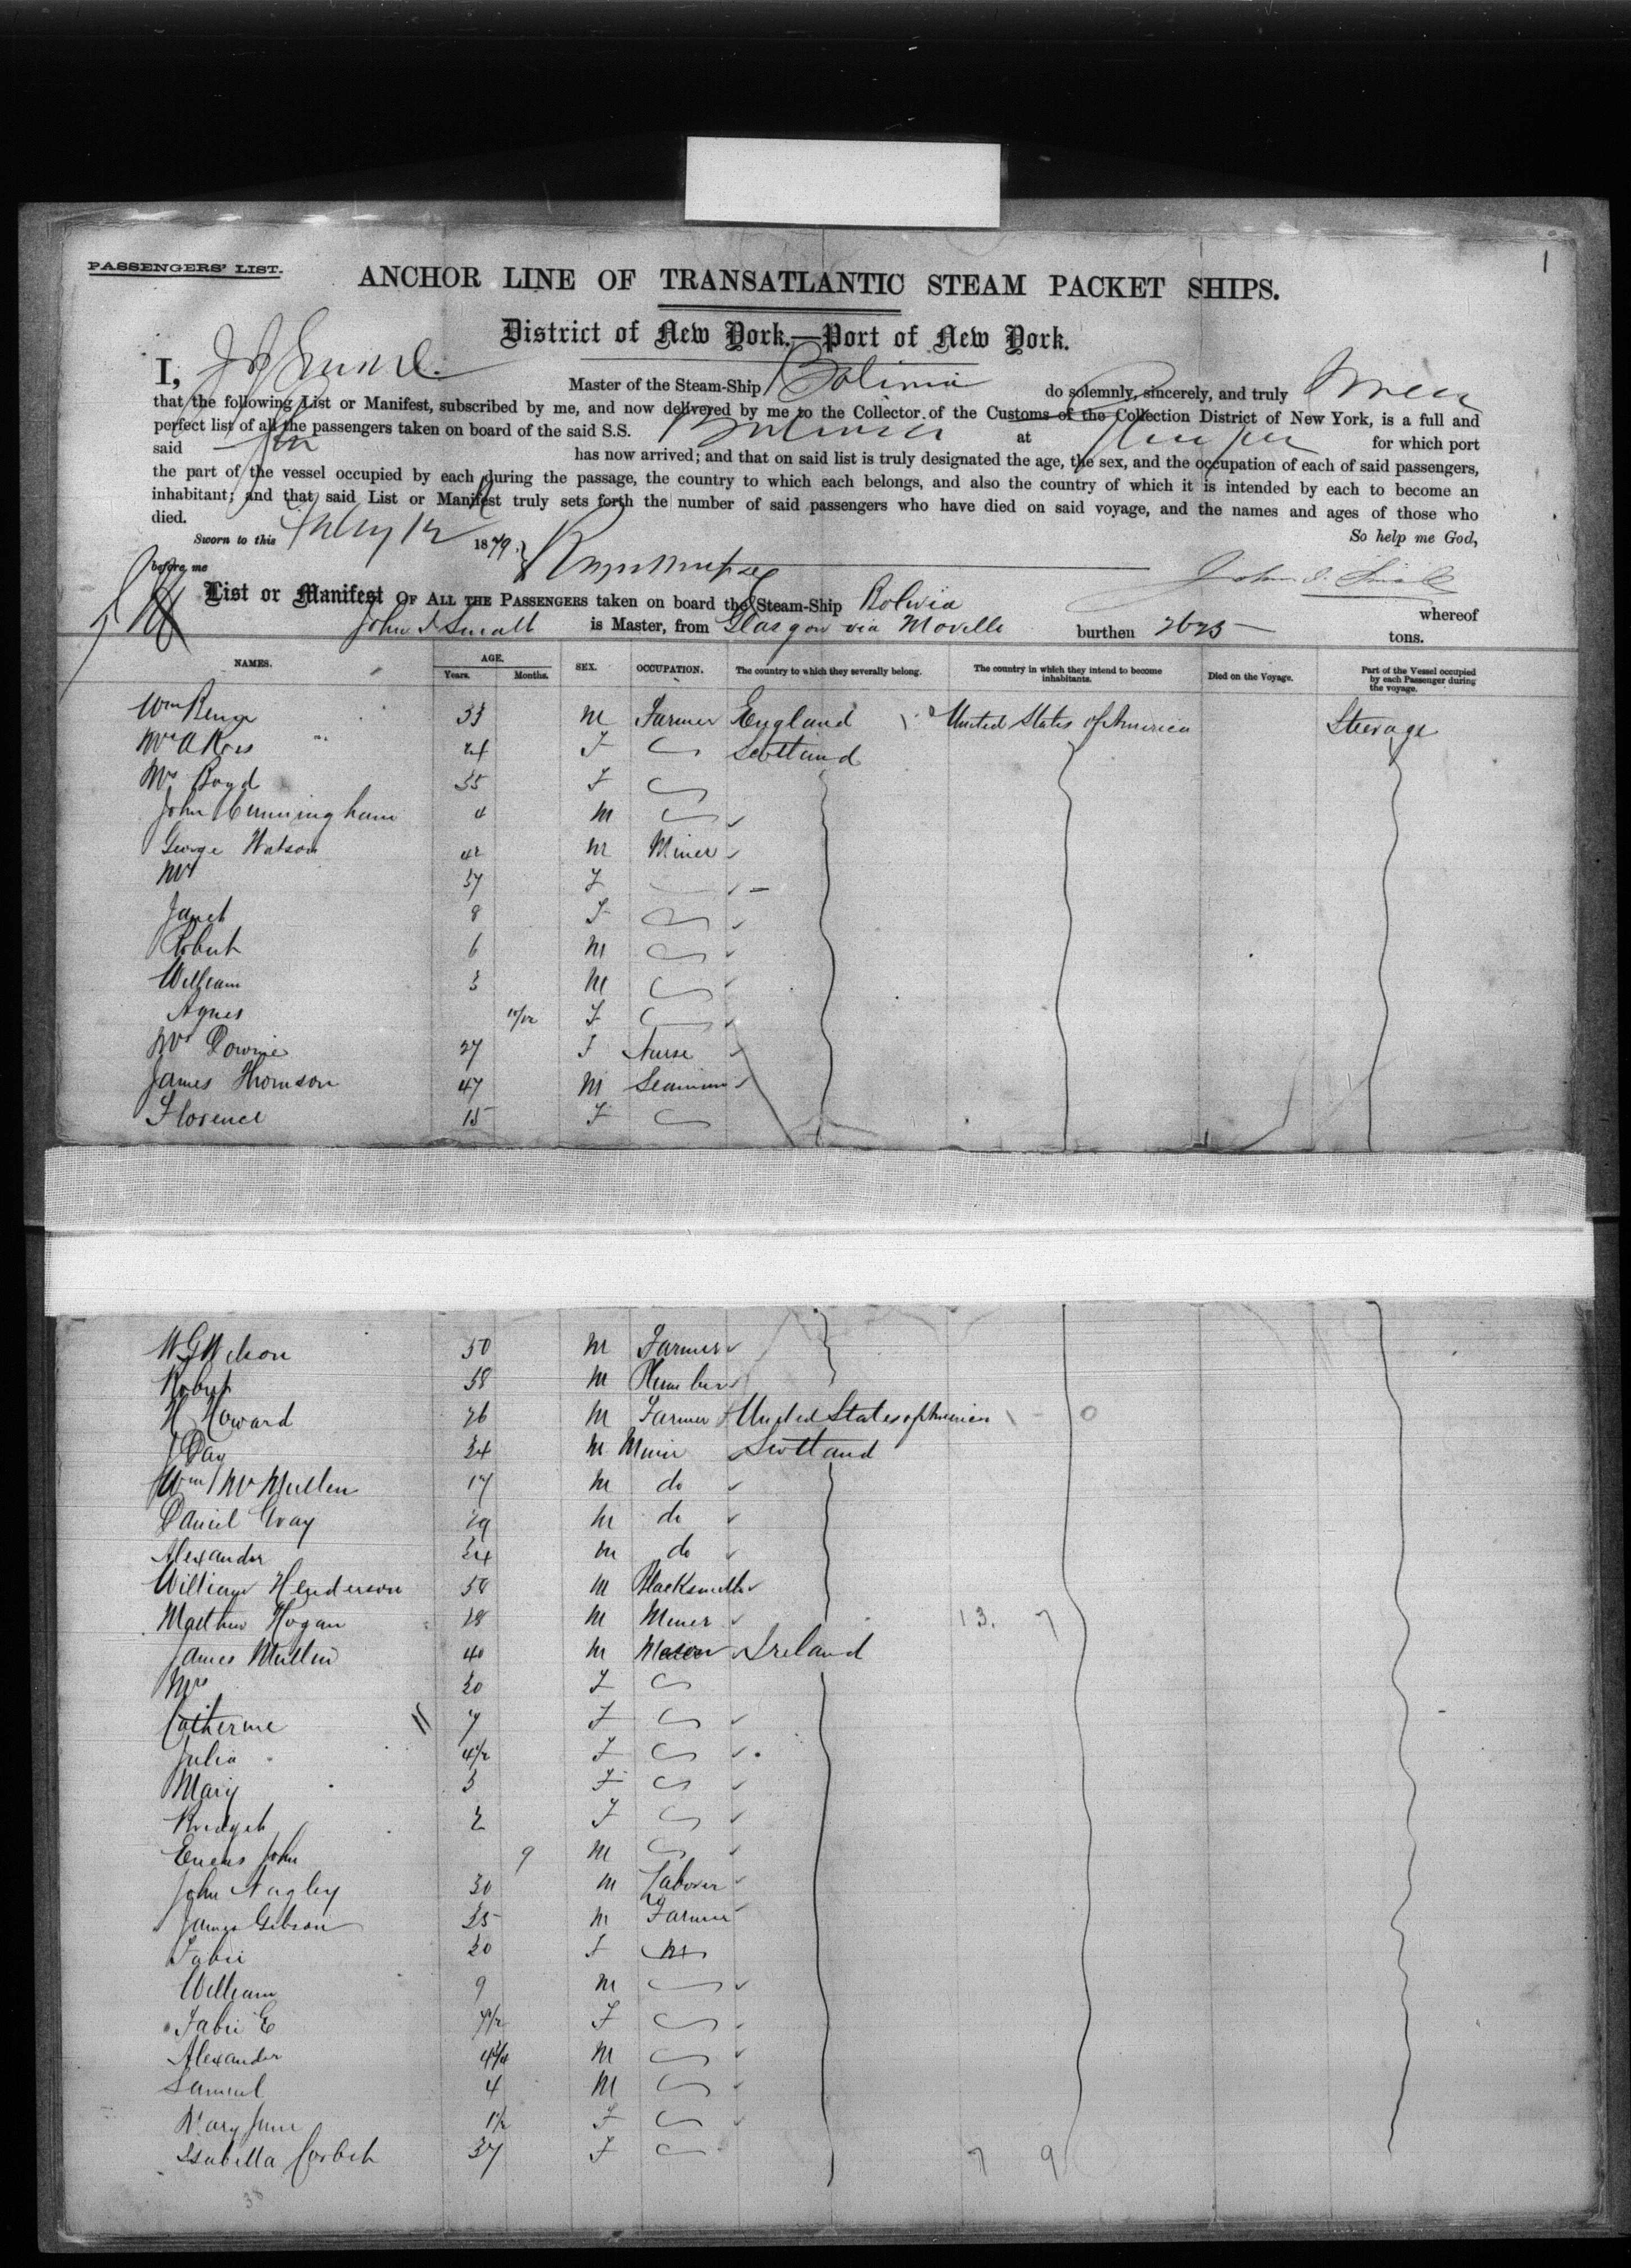 1
PASSENGERS' LIST.
ANCHOR LINE OF TRANSATLANTIC STEAM PACKET SHIPS.
District of New York,—Port of New York.
I, Master of the Steam-Ship Bolivia do solemnly, sincerely, and truly
that the following List or Manifest, subscribed by me, and now delivered by me to the Collector of the Customs of the Collection District of New York, is a full and
perfect list of all the passengers taken on board of the said S.S. Bolivia at for which port
said has now arrived; and that on said list is truly designated the age, the sex, and the occupation of each of said passengers,
the part of the vessel occupied by each during the passage, the country to which each belongs, and also the country of which it is intended by each to become an
inhabitant; and that said List or Manifest truly sets forth the number of said passengers who have died on said voyage, and the names and ages of those who
died.
So help me God,
Sworn to this 12 1879
before me
John D. Small
List or Manifest OF ALL THE PASSENGERS taken on board the Steam-Ship Bolivia whereof
John D Small is Master, from Glasgow via Moville burthen 2625 tons.
NAMES. AGE. Years. Months. SEX. OCCUPATION. The country to which they severally belong. The country in which they intend to become inhabitants. Died on the Voyage. Part of the Vessel occupied by each Passenger during the voyage.
Wm 33 M Farmer England United States of America Steerage
Mrs A 24 F Scotland
Mrs Boyd 35 F
John Cunningham 4 M
George Watson 42 M Miner
Mrs 37 F
Janet 8 F
Robert 6 M
William 3 M
Agnes 10/12 F
Mrs Downie 27 F Nurse
James Thomson 47 M Seaman
Florence 15 F
W G Wilson 50 M Farmer
Robert 58 M Plumber
H Howard 26 M Farmer United States of America
J Day 24 M Miner Scotland
Wm McMullen 17 M do
Daniel Gray 29 M do
Alexander 24 M do
William Henderson 58 M Blacksmith
Matthew Hogan 28 M Miner 13. 7
James Mullin 40 M Ireland
Mrs 30 F
Catherine 7 F
Julia 4 1/2 F
Mary 3 F
Bridget 2 F
John 9 M
John Nagley 30 M Labourer
James Gibson 35 M Farmer
30 F
William 9 M
E 7 1/2 F
Alexander M
Samuel 4 M
Mary Jane 1 1/2 F
Isabella Corbet 37 F 7 9
38